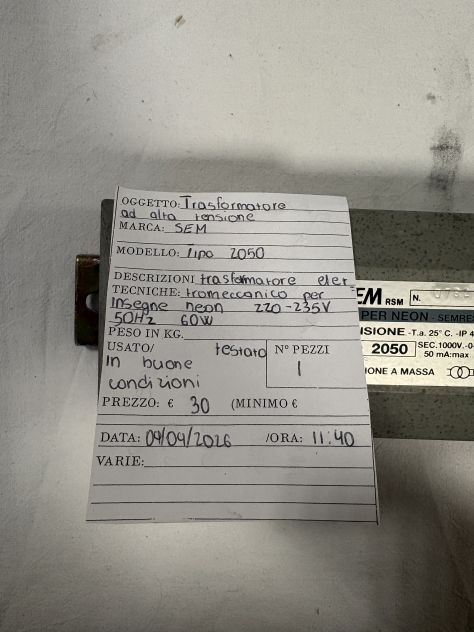 OGGETTO: Trasformatore
ad alta tensione
MARCA: SEM
MODELLO: Tipo 2050
DESCRIZIONI trasformatore elet-
TECNICHE: tromeccanico per
Insegne neon 220-235V
50Hz 60W
PESO IN KG.
USATO/ testato
in buone
condizioni
N° PEZZI
1
PREZZO: € 30 (MINIMO €
DATA: 09/09/2026 /ORA: 11:40
VARIE:
EM RSM N.
PER NEON - SEMRE
SIONE -T.a. 25° C. -IP 4
2050 SEC.1000V.-0
50 mA:max
IONE A MASSA